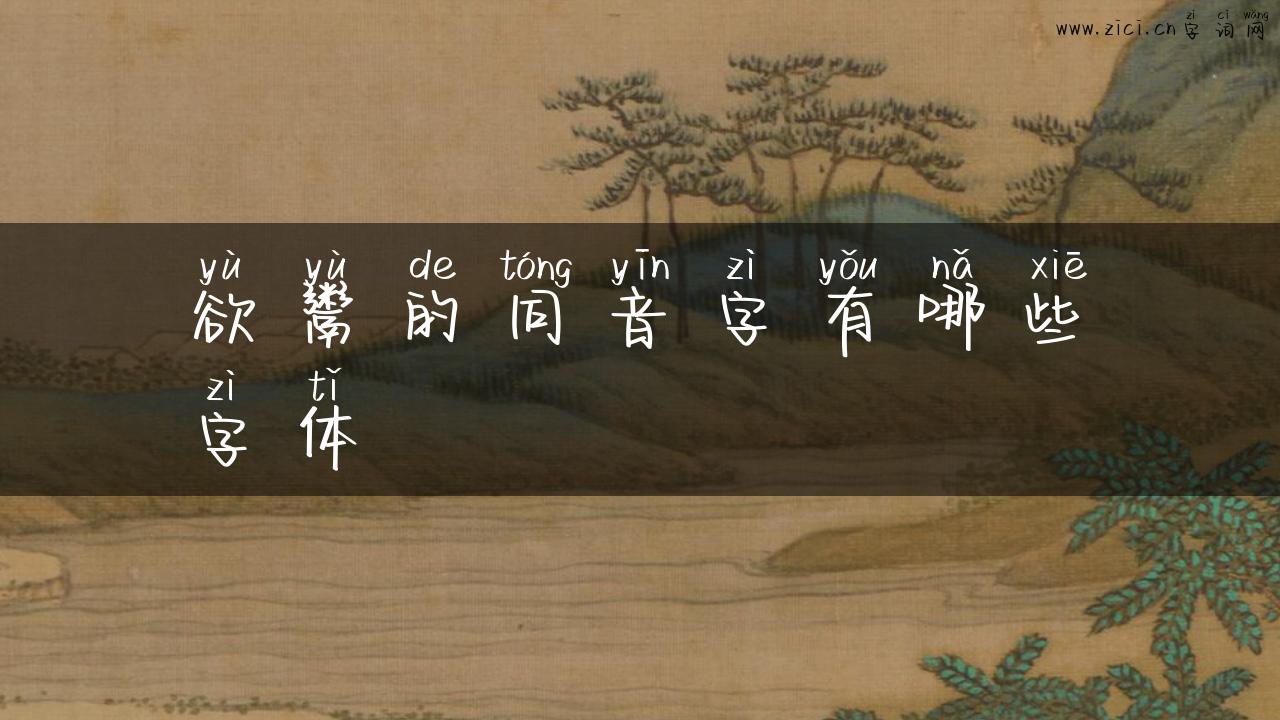 zì cí wǎng
www.zici.cn 字词网
yù yù de tóng yīn zì yǒu nǎ xiē
欲鬻的同音字有哪些
zì tǐ
字体